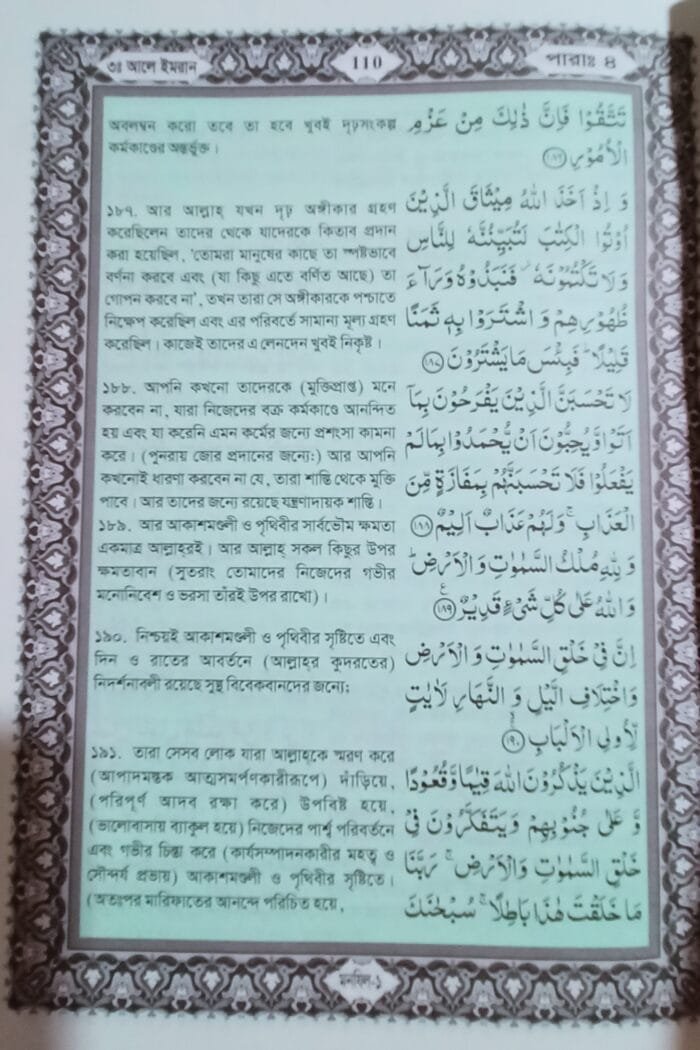 ৩ঃ আলে ইমরান
110
পারাঃ ৪
অবলম্বন করো তবে তা হবে খুবই দৃঢ়সংকল্প
কর্মকাণ্ডের অন্তর্ভুক্ত।
১৮৭. আর আল্লাহ যখন দৃঢ় অঙ্গীকার গ্রহণ
করেছিলেন তাদের থেকে যাদেরকে কিতাব প্রদান
করা হয়েছিল, 'তোমরা মানুষের কাছে তা স্পষ্টভাবে
বর্ণনা করবে এবং (যা কিছু এতে বর্ণিত আছে) তা
গোপন করবে না', তখন তারা সে অঙ্গীকারকে পশ্চাতে
নিক্ষেপ করেছিল এবং এর পরিবর্তে সামান্য মূল্য গ্রহণ
করেছিল। কাজেই তাদের এ লেনদেন খুবই নিকৃষ্ট।
১৮৮. আপনি কখনো তাদেরকে (মুক্তিপ্রাপ্ত) মনে
করবেন না, যারা নিজেদের বক্র কর্মকাণ্ডে আনন্দিত
হয় এবং যা করেনি এমন কর্মের জন্যে প্রশংসা কামনা
করে। (পুনরায় জোর প্রদানের জন্যে:) আর আপনি
কখনোই ধারণা করবেন না যে, তারা শাস্তি থেকে মুক্তি
পাবে। আর তাদের জন্যে রয়েছে যন্ত্রণাদায়ক শাস্তি।
১৮৯. আর আকাশমণ্ডলী ও পৃথিবীর সার্বভৌম ক্ষমতা
একমাত্র আল্লাহরই। আর আল্লাহ সকল কিছুর উপর
ক্ষমতাবান (সুতরাং তোমাদের নিজেদের গভীর
মনোনিবেশ ও ভরসা তাঁরই উপর রাখো)।
১৯০. নিশ্চয়ই আকাশমণ্ডলী ও পৃথিবীর সৃষ্টিতে এবং
দিন ও রাতের আবর্তনে (আল্লাহর কুদরতের)
নিদর্শনাবলী রয়েছে সুস্থ বিবেকবানদের জন্যে;
১৯১. তারা সেসব লোক যারা আল্লাহকে স্মরণ করে
(আপাদমস্তক আত্মসমর্পণকারীরূপে) দাঁড়িয়ে,
(পরিপূর্ণ আদব রক্ষা করে) উপবিষ্ট হয়ে,
(ভালোবাসায় ব্যাকুল হয়ে) নিজেদের পার্শ্ব পরিবর্তনে
এবং গভীর চিন্তা করে (কার্যসম্পাদনকারীর মহত্ব ও
সৌন্দর্য প্রভায়) আকাশমণ্ডলী ও পৃথিবীর সৃষ্টিতে।
(অতঃপর মারিফাতের আনন্দে পরিচিত হয়ে,
تَتَّقُوْا فَاِنَّ ذٰلِكَ مِنْ عَزْمِ
الْاُمُوْرِ ﴿۱۸۶﴾
وَ اِذْ اَخَذَ اللّٰهُ مِيْثَاقَ الَّذِيْنَ
اُوْتُوا الْكِتٰبَ لَتُبَيِّنُنَّهٗ لِلنَّاسِ
وَ لَا تَكْتُمُوْنَهٗ ۫ فَنَبَذُوْهُ وَرَآءَ
ظُهُوْرِهِمْ وَ اشْتَرَوْا بِهٖ ثَمَنًا
قَلِيْلًا ؕ فَبِئْسَ مَا يَشْتَرُوْنَ ﴿۱۸۷﴾
لَا تَحْسَبَنَّ الَّذِيْنَ يَفْرَحُوْنَ بِمَاۤ
اَتَوْا وَّ يُحِبُّوْنَ اَنْ يُّحْمَدُوْا بِمَا لَمْ
يَفْعَلُوْا فَلَا تَحْسَبَنَّهُمْ بِمَفَازَةٍ مِّنَ
الْعَذَابِ ۚ وَ لَهُمْ عَذَابٌ اَلِيْمٌ ﴿۱۸۸﴾
وَ لِلّٰهِ مُلْكُ السَّمٰوٰتِ وَ الْاَرْضِ ؕ
وَ اللّٰهُ عَلٰى كُلِّ شَىْءٍ قَدِيْرٌ ﴿۱۸۹﴾
اِنَّ فِيْ خَلْقِ السَّمٰوٰتِ وَ الْاَرْضِ
وَ اخْتِلَافِ الَّيْلِ وَ النَّهَارِ لَاٰيٰتٍ
لِّاُولِي الْاَلْبَابِ ﴿۱۹۰﴾
الَّذِيْنَ يَذْكُرُوْنَ اللّٰهَ قِيٰمًا وَّ قُعُوْدًا
وَّ عَلٰى جُنُوْبِهِمْ وَ يَتَفَكَّرُوْنَ فِيْ
خَلْقِ السَّمٰوٰتِ وَ الْاَرْضِ ۚ رَبَّنَا
مَا خَلَقْتَ هٰذَا بَاطِلًا ۚ سُبْحٰنَكَ
মনযিল-১